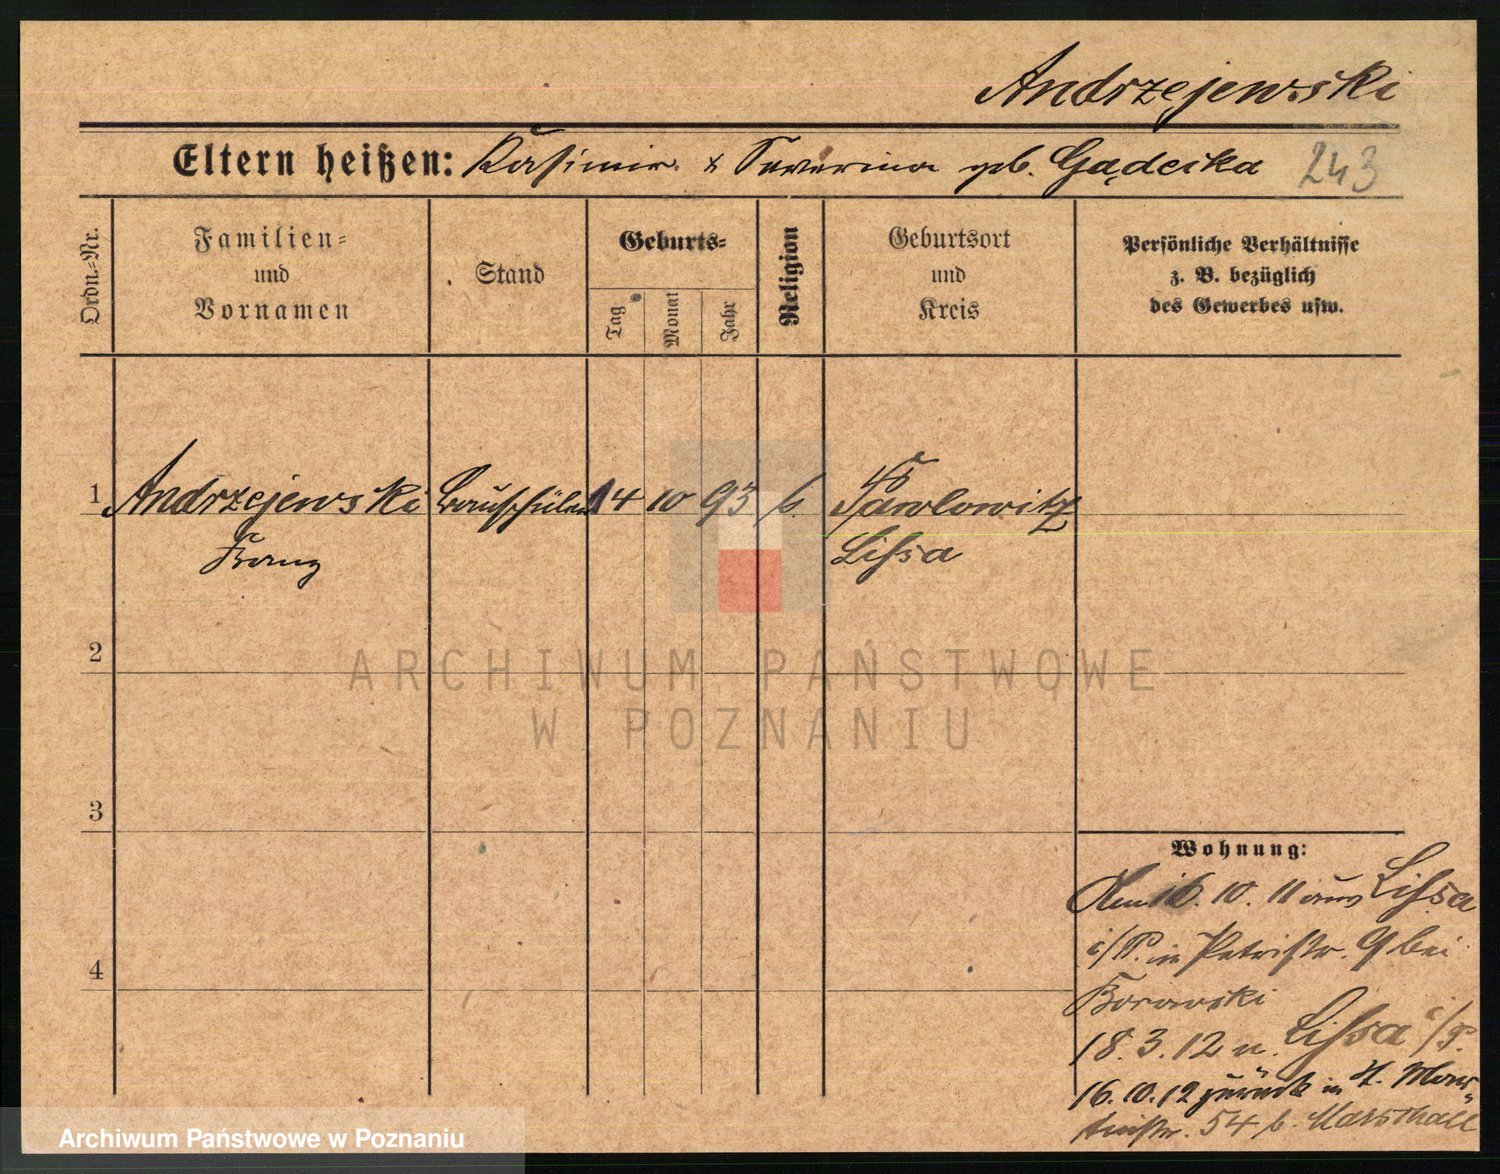 Andrzejewski
Eltern heißen: Kasimir & Severina geb. Gądecka 243
Ordn.-Nr.
Familien-
und
Vornamen
Stand
Geburts-
Tag
Monat
Jahr
Religion
Geburtsort
und
Kreis
Persönliche Verhältnisse
z. B. bezüglich
des Gewerbes usw.
1 Andrzejewski Bauschüler 14 10 93 k. Pawlowitz
Franz Lissa
2
ARCHIWUM PAŃSTWOWE
W POZNANIU
3
Wohnung:
Am 16. 10. 11 aus Lissa
i/P. in Petristr. 9 bei
4
Borowski
18. 3. 12 n. Lissa i/P.
16. 10. 12 zurück in St. Mar-
tinstr. 54 b. Marschall
Archiwum Państwowe w Poznaniu